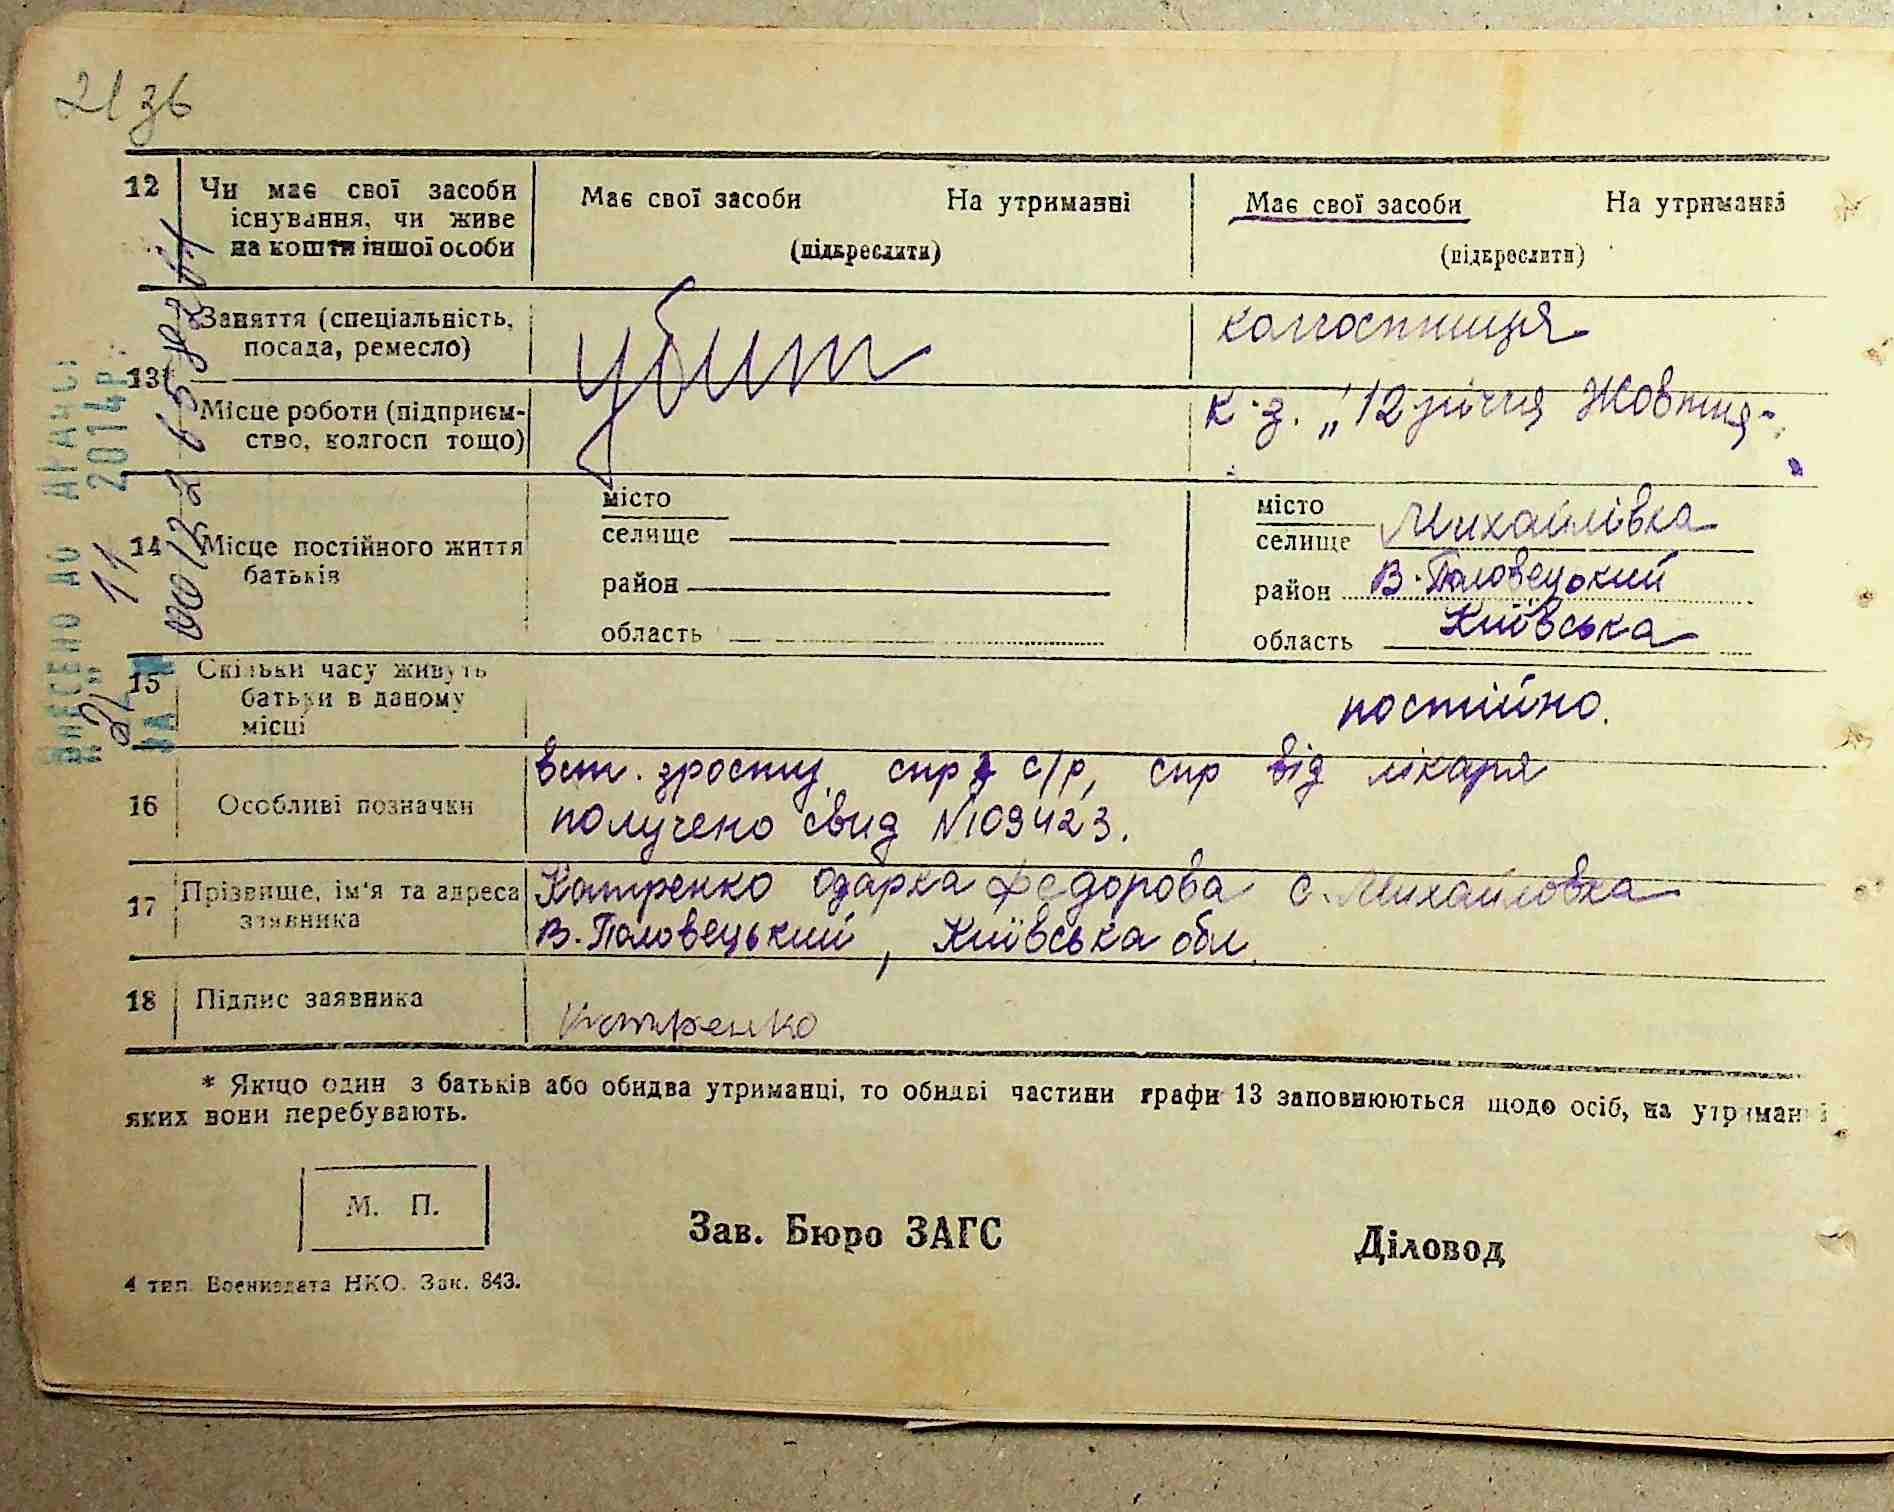 21 зв
12 Чи має свої засоби існування, чи живе на кошти іншої особи
Має свої засоби На утриманні
(підкреслити)
Має свої засоби На утриманні
(підкреслити)
13* Заняття (спеціальність, посада, ремесло)
убит
колгоспниця
Місце роботи (підприєм-
ство, колгосп тощо)
к-з. "12 річчя Жовтня-
14 Місце постійного життя
батьків
місто
селище
район
область
місто
селище Михайлівка
район В. Половецький
область Київська
15 Скільки часу живуть
батьки в даному
місці
постійно.
16 Особливі позначки
вст. зрості спр з с/р, спр від лікаря
получено свид №109423.
17 Прізвище, ім'я та адреса
заявника
Катренко Одарка Федорова с. Михайловка
В. Половецький, Київська обл.
18 Підпис заявника
Катренко
* Якщо один з батьків або обидва утриманці, то обидві частини графи 13 заповнюються щодо осіб, на утриманні
яких вони перебувають.
М. П.
Зав. Бюро ЗАГС
Діловод
4 тип. Воениздата НКО. Зак. 843.
ВНЕСЕНО ДО ДРАЦС
11 2014р.